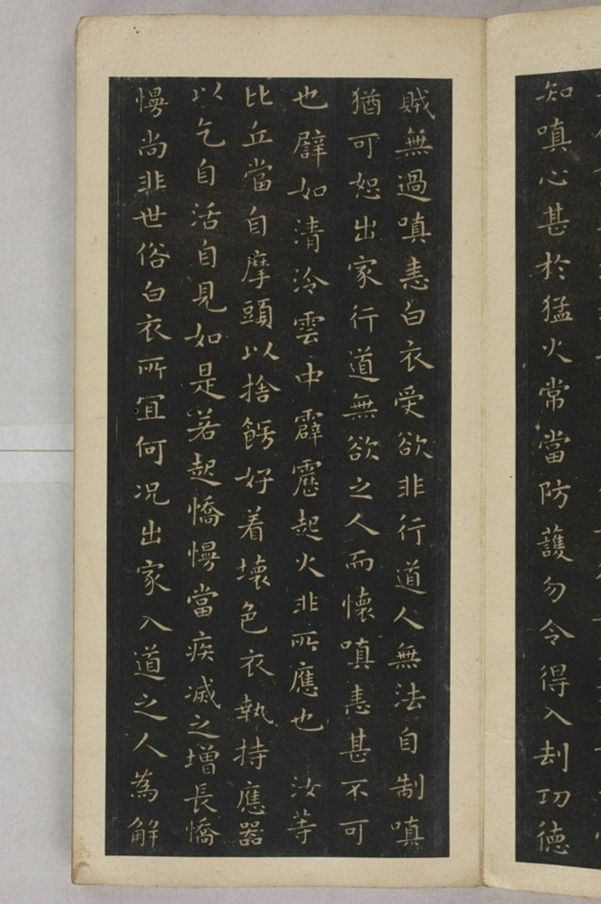 知嗔心甚於猛火常當防護勿令得入刦功德
賊無過嗔恚白衣受欲非行道人無法自制嗔
猶可恕出家行道無欲之人而懷嗔恚甚不可
也譬如清泠雲中霹靂起火非所應也 汝等
比丘當自摩頭以捨餝好着壞色衣執持應器
以乞自活自見如是若起憍慢當疾滅之增長憍
慢尚非世俗白衣所冝何况出家入道之人為解